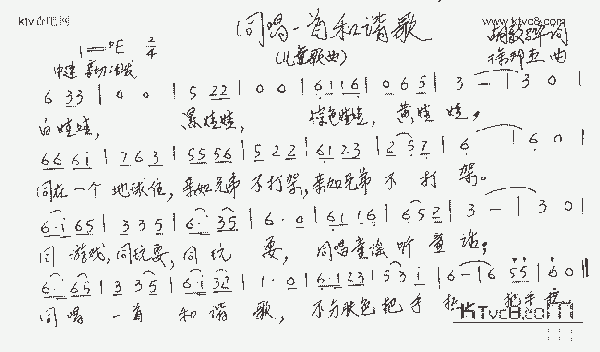 同唱一首和谐歌
www.ktvc8.com
(儿童歌曲)
1=♭E 2/4
中速 亲切活泼
6 33 | 0 0 | 5 22 | 0 0 | 6116 | 0 65 | 3 - | 3 0 |
白娃娃, 黑娃娃, 棕色娃娃, 黄娃娃,
66 6i | 7 6 3 | 55 56 | 5 22 | 61 23 | 2 57 | 6 - | 6 0 |
同在一个地球住,亲如兄弟不打架,亲如兄弟不打架。
6·i 65 | 3 35 | 6· 35 | 6· 0 | 61 16 | 652 | 3 - | 3 0 |
同游戏,同玩耍,同玩耍, 同唱童谣听童话;
6· 65 | 3 35 | 6i 32 | 1· 0 | 6·123 | 53i | 6 - | 6 55 | 6 0 ||
同唱一首和谐歌, 不分肤色把手拉 把手拉
KTvc8.com